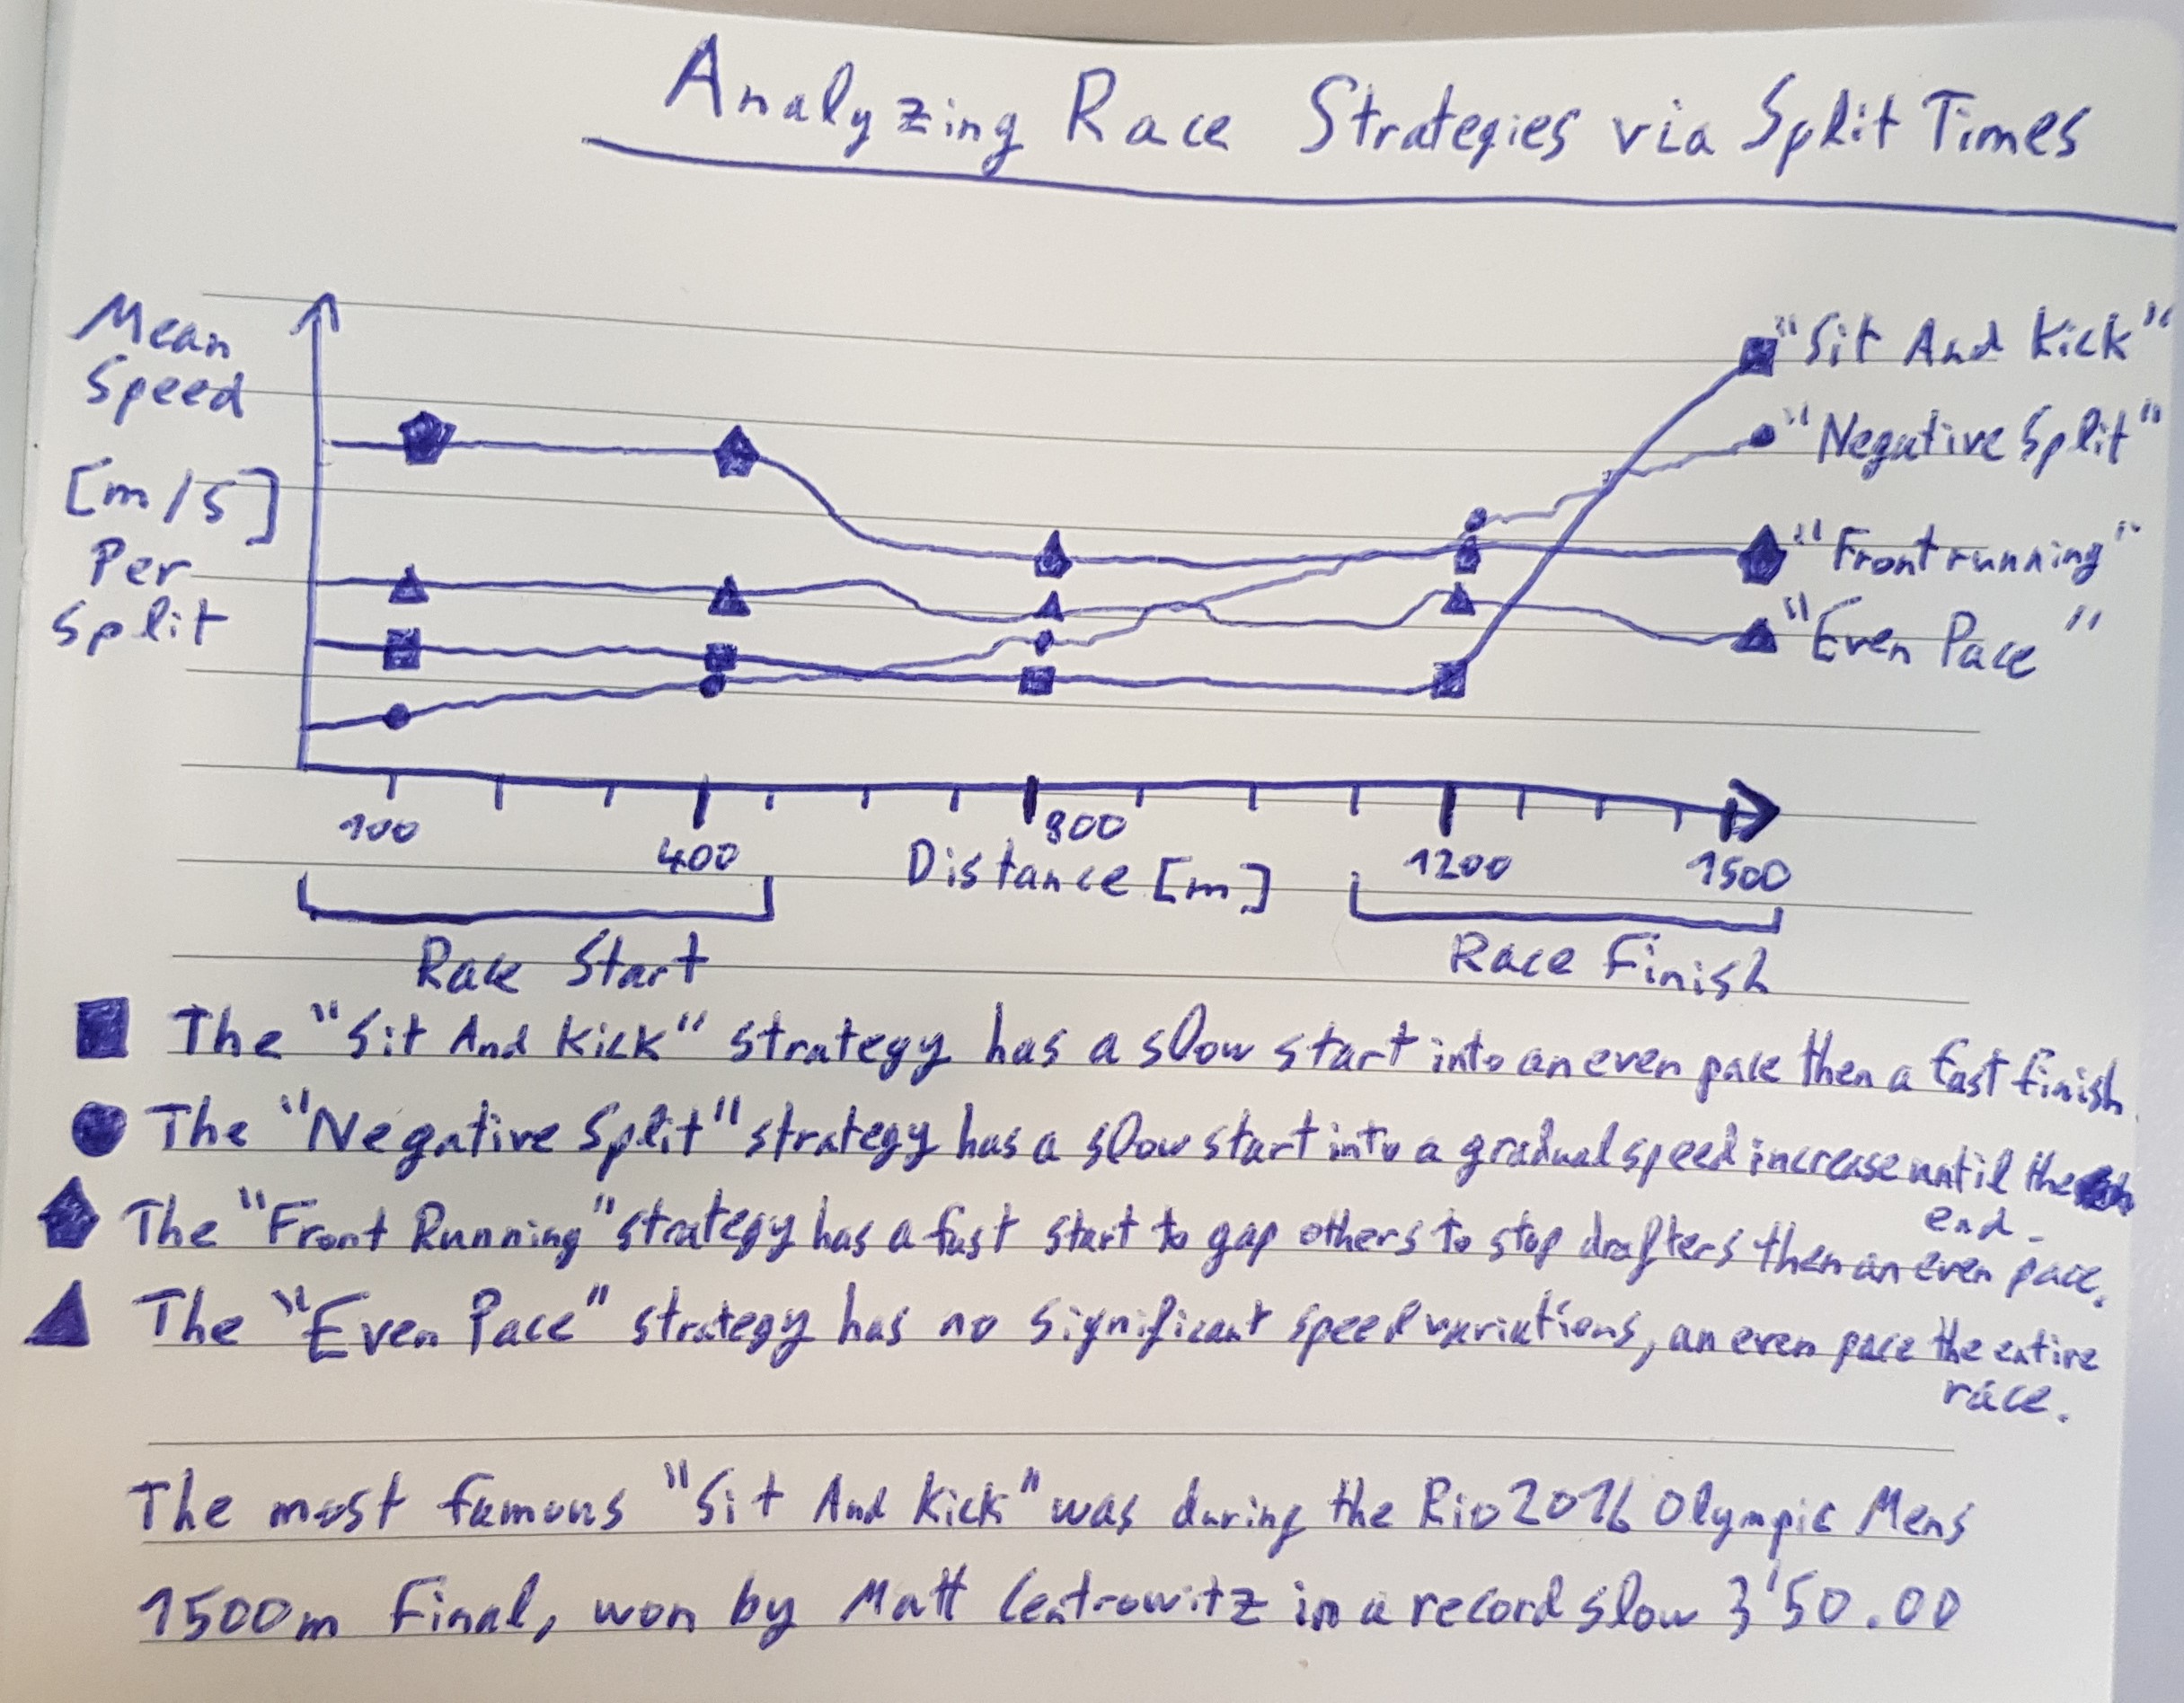 Analyzing Race Strategies via Split Times
Mean
Speed
[m/s]
Per
Split
"Sit And Kick"
"Negative Split"
"Frontrunning"
"Even Pace"
100
400
800
1200
1500
Distance [m]
Race Start
Race Finish
The "Sit And Kick" strategy has a slow start into an even pace then a fast finish.
The "Negative Split" strategy has a slow start into a gradual speed increase until the
end.
The "Front Running" strategy has a fast start to gap others to stop drafters then an even pace.
The "Even Pace" strategy has no significant speed variations, an even pace the entire
race.
The most famous "Sit And Kick" was during the Rio 2016 Olympic Mens
1500m Final, won by Matt Centrowitz in a record slow 3'50.00